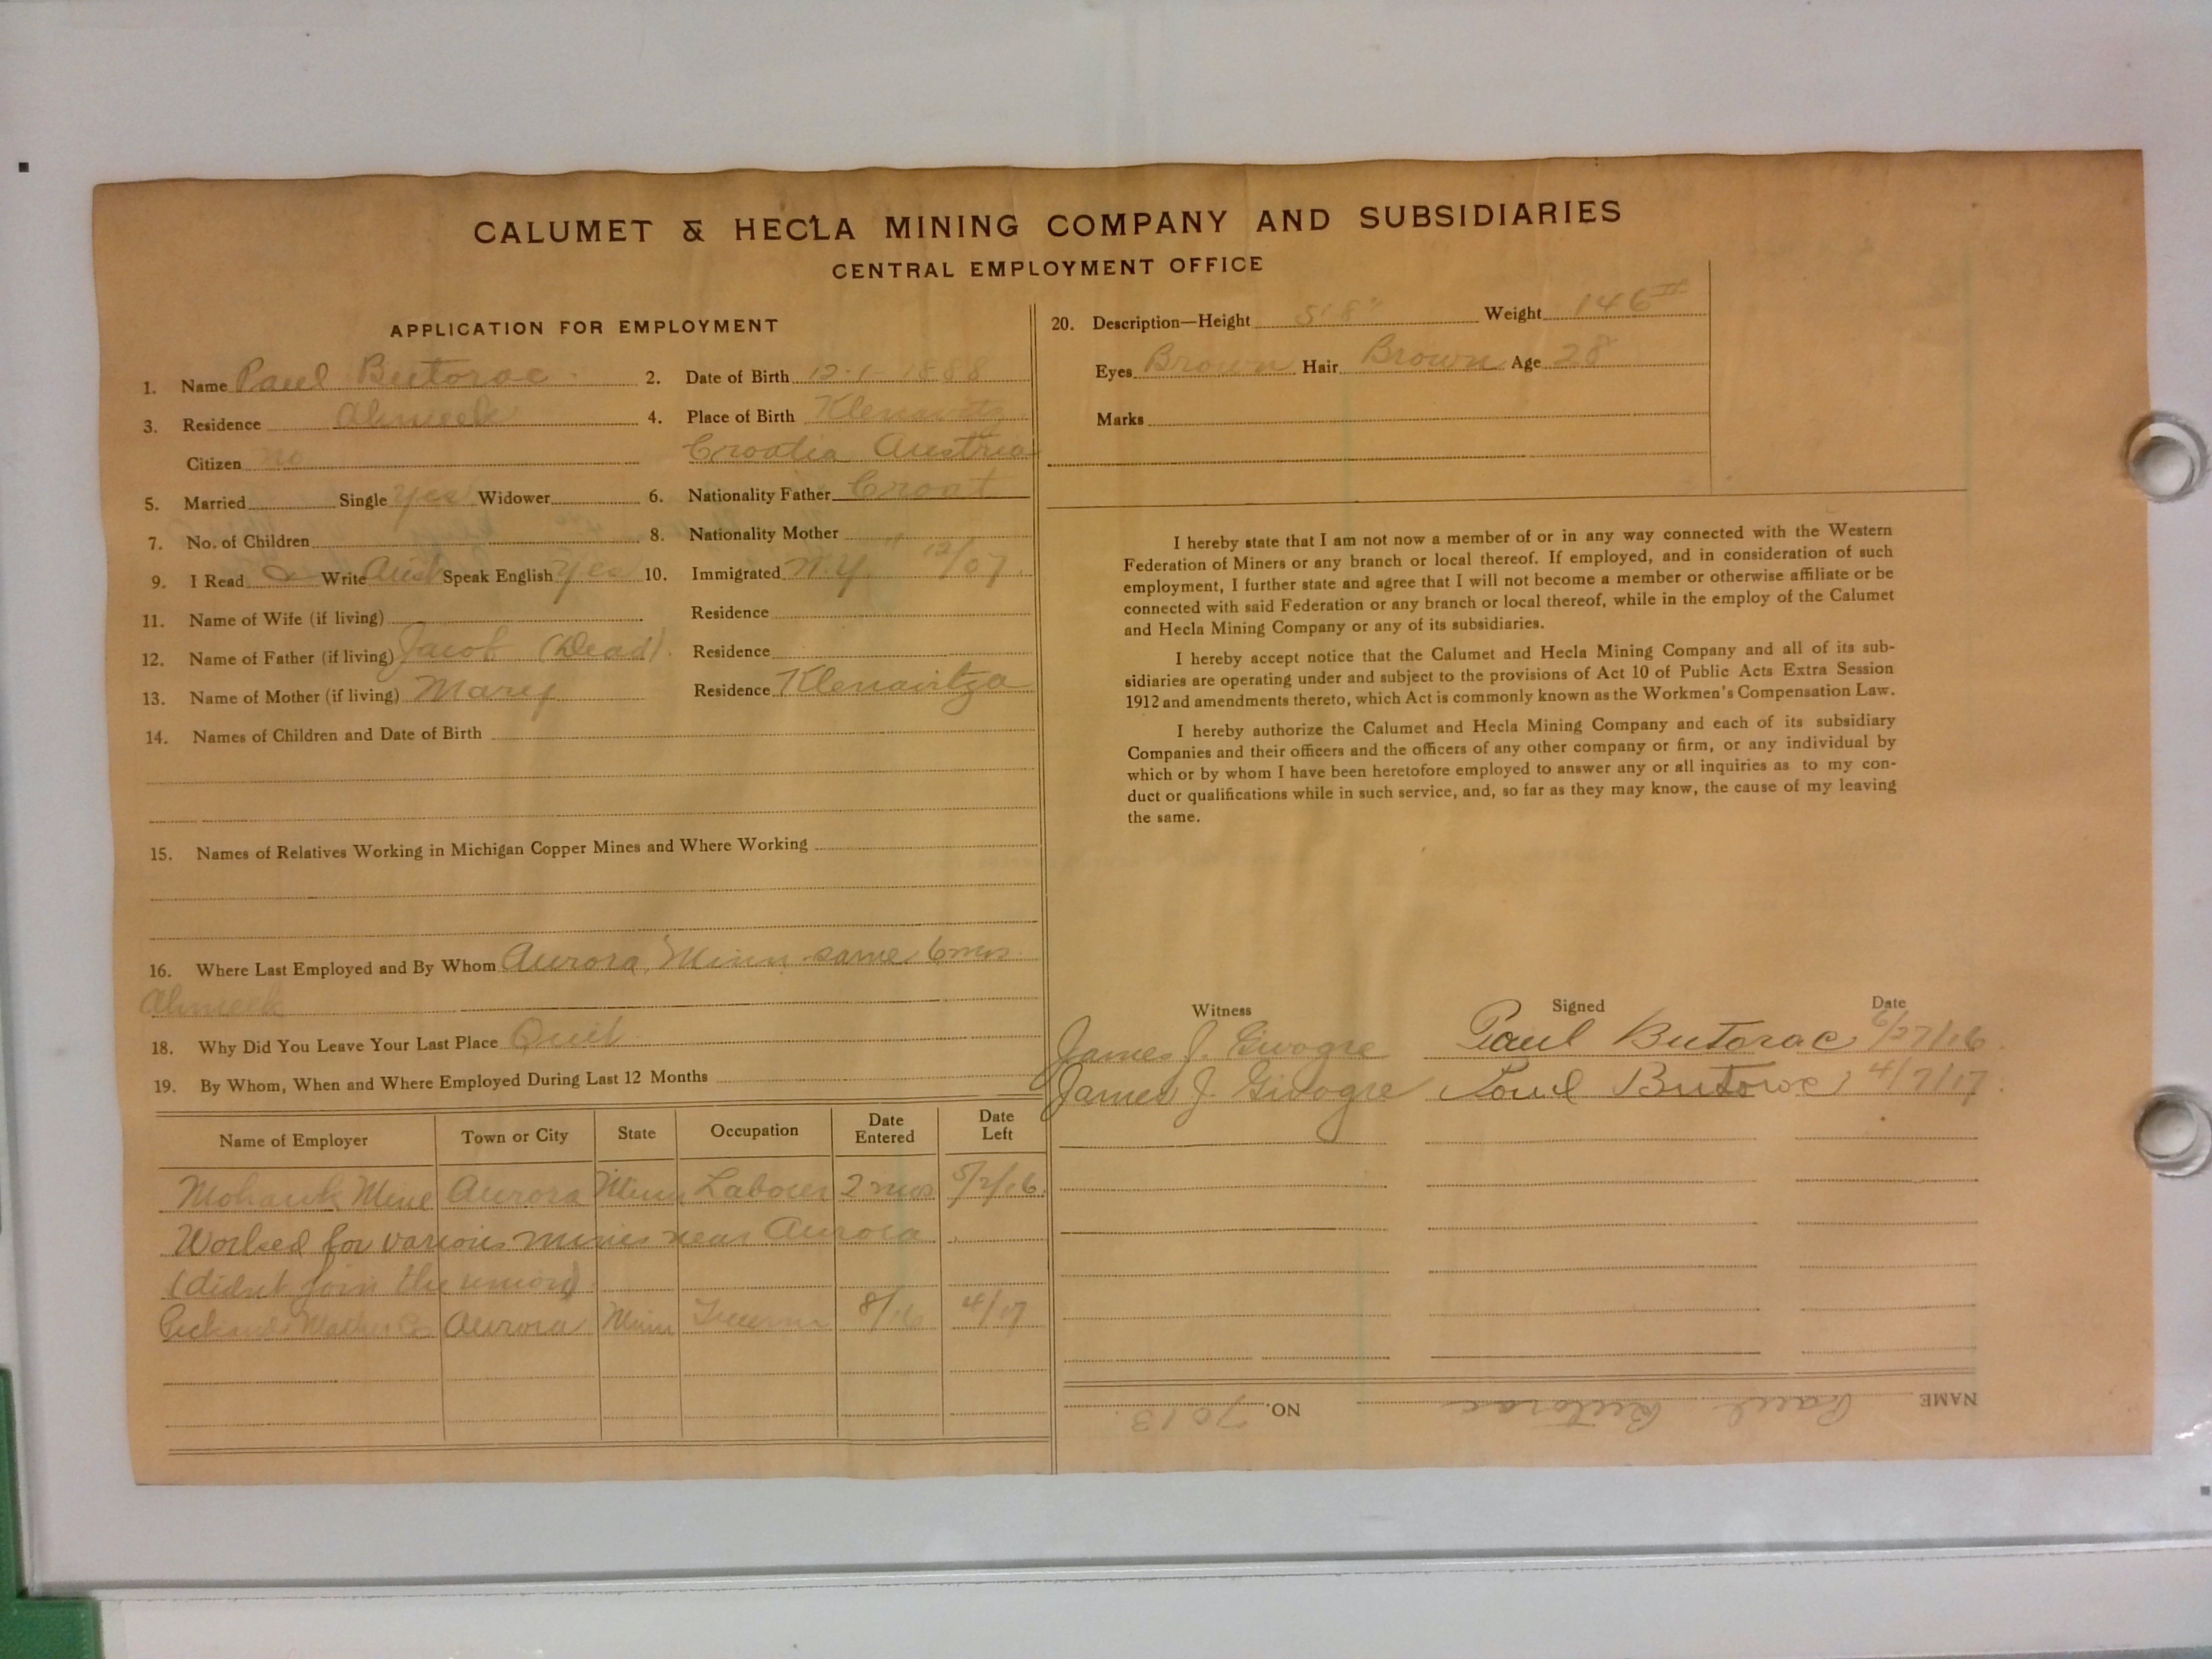 CALUMET & HECLA MINING COMPANY AND SUBSIDIARIES
CENTRAL EMPLOYMENT OFFICE
APPLICATION FOR EMPLOYMENT
1. Name Paul Butorac 2. Date of Birth 12-1-1888
3. Residence Ahmeek 4. Place of Birth
Citizen no Croatia Austria
5. Married Single Yes Widower 6. Nationality Father Croat
7. No. of Children 8. Nationality Mother "
9. I Read & Write Aust Speak English Yes 10. Immigrated N.Y. 12/07
11. Name of Wife (if living) Residence
12. Name of Father (if living) Jacob (Dead) Residence
13. Name of Mother (if living) Mary Residence Klenavitza
14. Names of Children and Date of Birth
15. Names of Relatives Working in Michigan Copper Mines and Where Working
16. Where Last Employed and By Whom Aurora, Minn same 6 mos.
Ahmeek
18. Why Did You Leave Your Last Place Quit
19. By Whom, When and Where Employed During Last 12 Months
Name of Employer Town or City State Occupation Date Entered Date Left
Mohawk Mine Aurora Minn Laborer 2 mos 5/2/16.
Worked for various mines near Aurora
(didnt join the union)
Pickands Mather Co Aurora Minn 8/16 4/17
20. Description—Height 5'8" Weight 146#
Eyes Brown Hair Brown Age 28
Marks
I hereby state that I am not now a member of or in any way connected with the Western
Federation of Miners or any branch or local thereof. If employed, and in consideration of such
employment, I further state and agree that I will not become a member or otherwise affiliate or be
connected with said Federation or any branch or local thereof, while in the employ of the Calumet
and Hecla Mining Company or any of its subsidiaries.
I hereby accept notice that the Calumet and Hecla Mining Company and all of its sub-
sidiaries are operating under and subject to the provisions of Act 10 of Public Acts Extra Session
1912 and amendments thereto, which Act is commonly known as the Workmen's Compensation Law.
I hereby authorize the Calumet and Hecla Mining Company and each of its subsidiary
Companies and their officers and the officers of any other company or firm, or any individual by
which or by whom I have been heretofore employed to answer any or all inquiries as to my con-
duct or qualifications while in such service, and, so far as they may know, the cause of my leaving
the same.
Witness Signed Date
James J. Paul Butorac 6/27/16
James J. Paul Butorac 4/7/17
NAME Paul Butorac NO. 7013